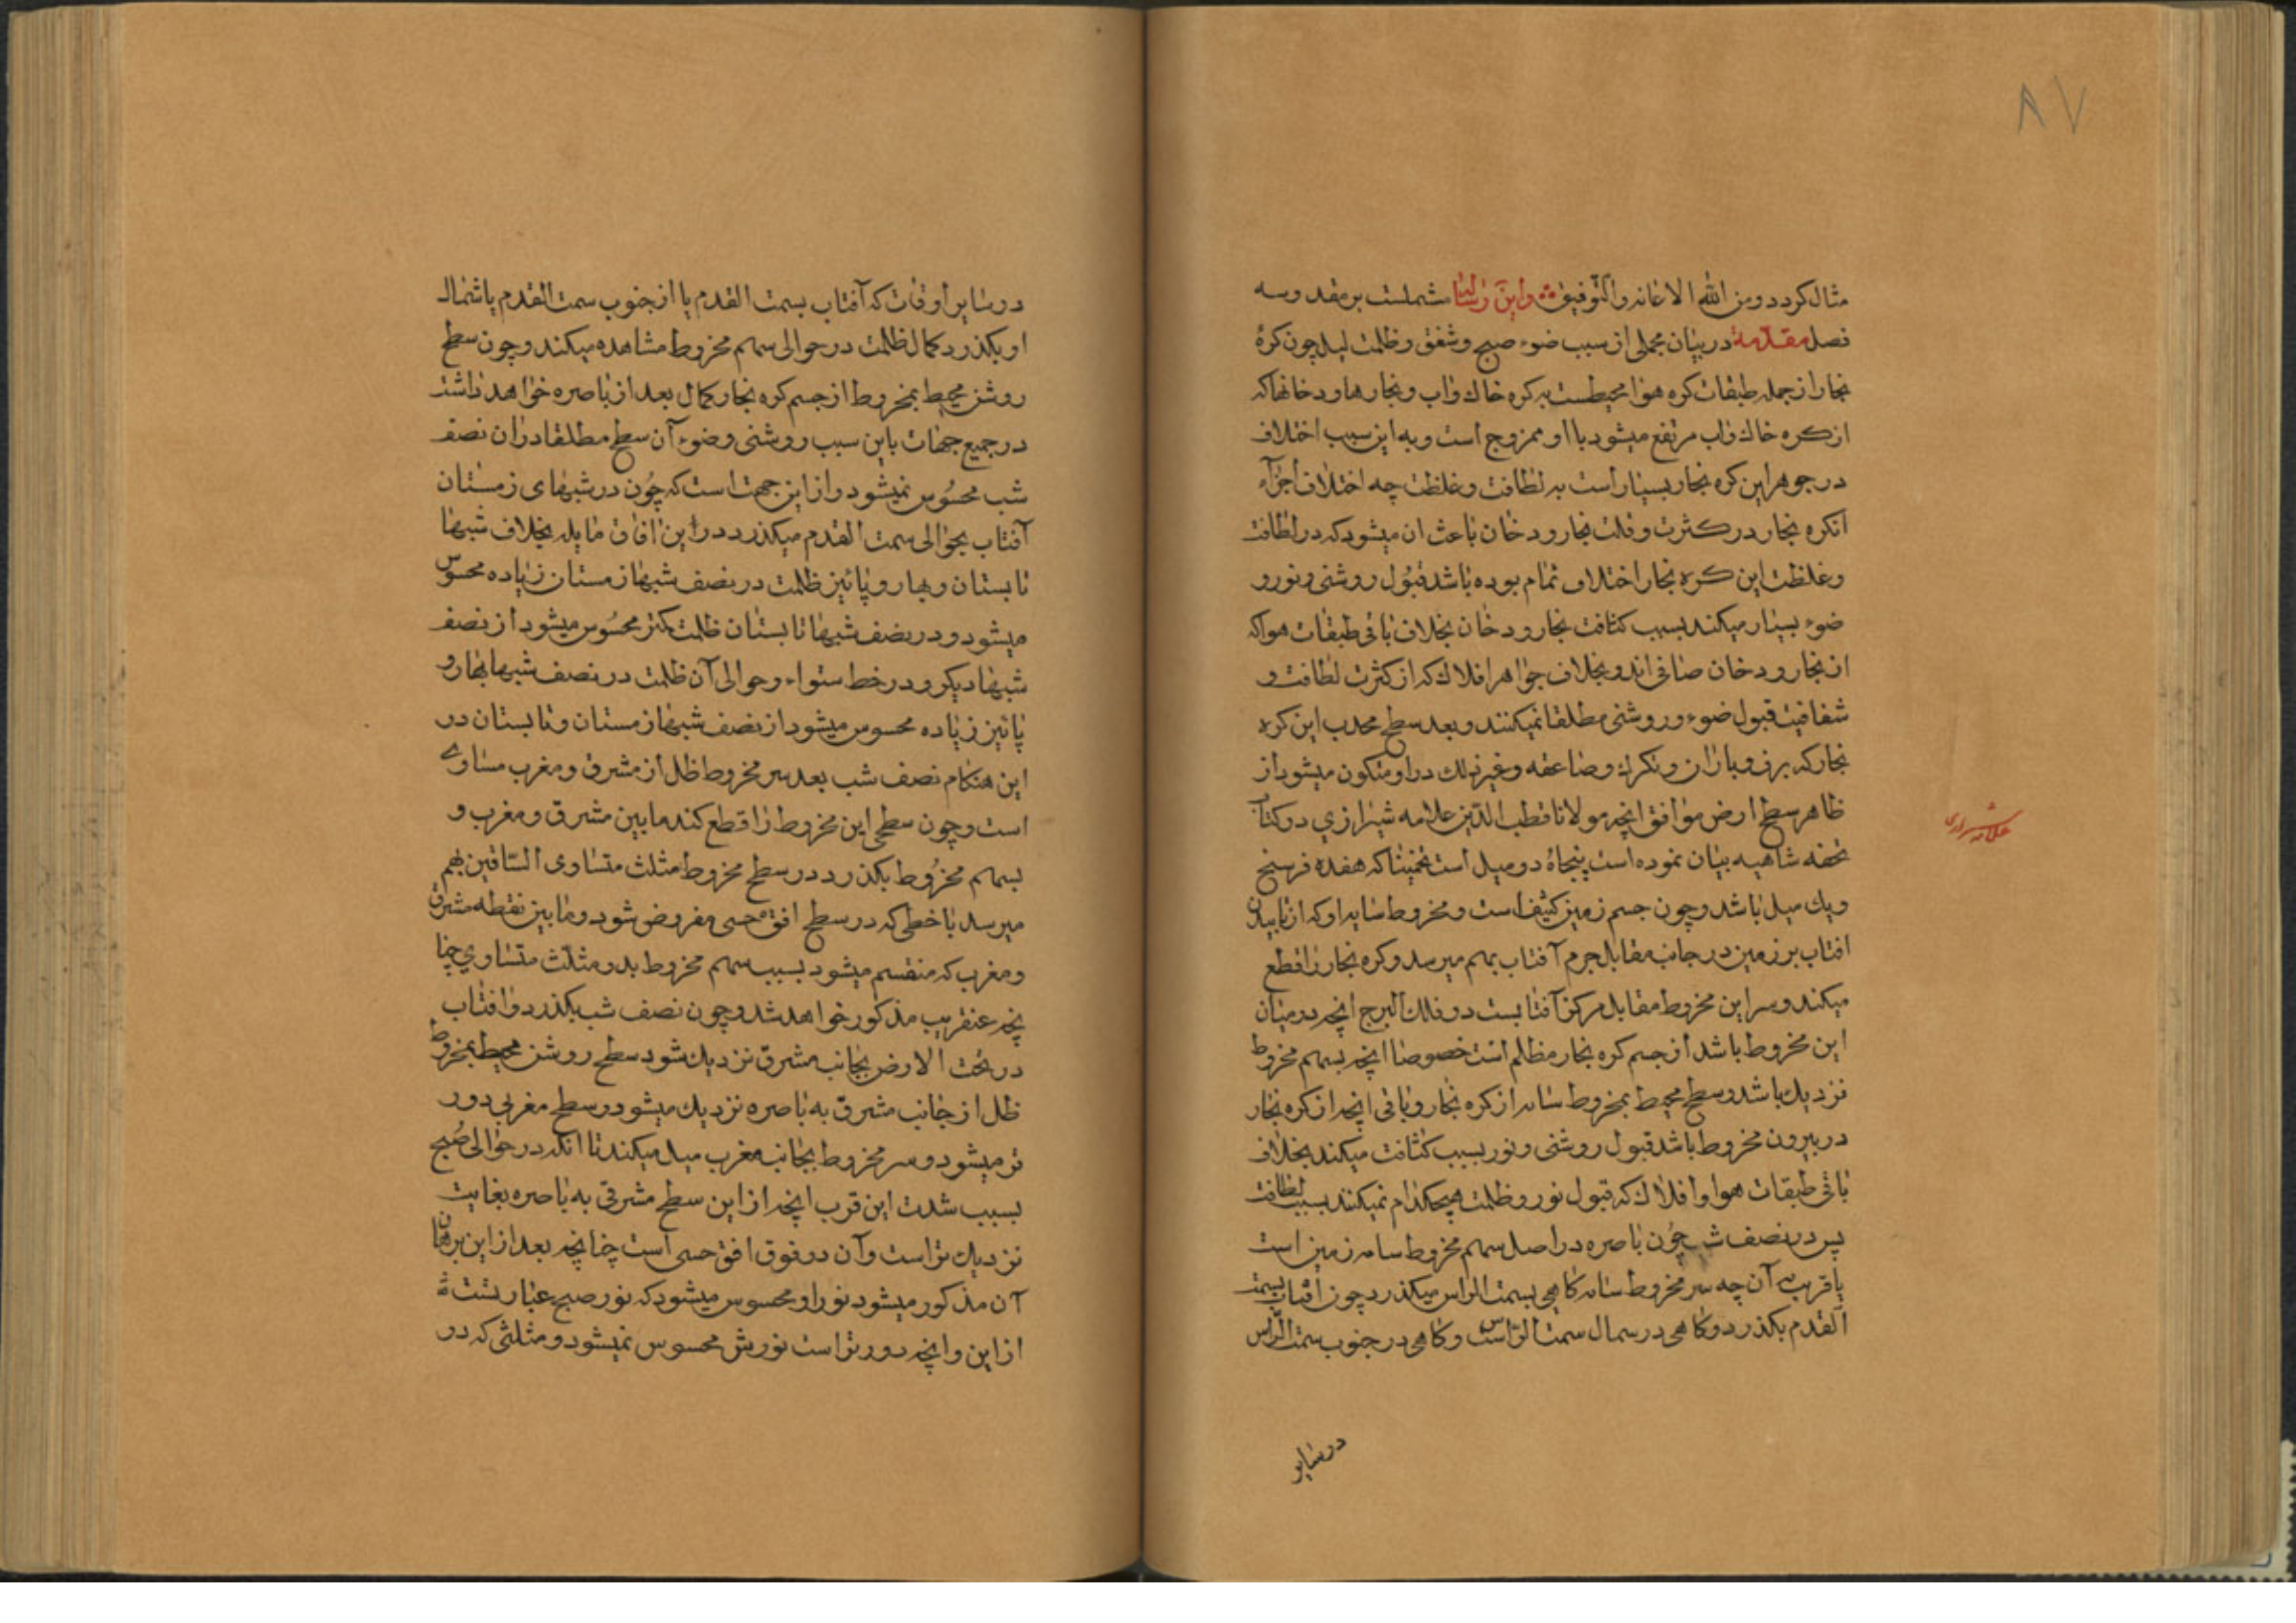 ۸۷
مثال کردد ومن الله الاعانه والتوفیق واین رساله مشتملست بر مقدمه وسه
فصل مقدمه در بیان مجملی از سبب ضوء صبح وشفق وظلمت لیل چون کرهٔ
بخار از جمله طبقات کره هوا محیطست به کره خاك واب وبخارها ودخانها که
از کره خاك واب مرتفع میشود با او ممزوج است وبه این سبب اختلاف
در جوهر این کره بخار بسیار است به لطافت وغلظت چه اختلاف اجزآء
انکره بخار در کثرت وقلت بخار ودخان باعث ان میشود که در لطافت
وغلظت این کره بخار اختلاف تمام بوده باشد قبول روشنی ونور و
ضوء بسیار میکند بسبب کثافت بخار ودخان بخلاف باقی طبقات هوا که
از بخار ودخان صافی اند وبخلاف جواهر افلاك که از کثرت لطافت و
شفافیت قبول ضوء وروشنی مطلقا نمیکنند وبعد سطح محدب این کره
بخار که برف وباران وتکرك وصاعقه وغیر ذلك در او متکون میشود از
ظاهر سطح ارض موافق انچه مولانا قطب الدین علامه شیرازی در کتاب
علامه شیرازی
تحفه شاهیه بیان نموده است پنجاه دو میل است تخمینا که هفده فرسخ
ویك میل باشد وچون جسم زمین کثیف است ومخروط سایه او که از تابیدن
افتاب بر زمین در جانب مقابل جرم آفتاب بهم میرسد وکره بخار را قطع
میکند وسر این مخروط مقابل مرکز آفتابست در فلك البرج انچه در میان
این مخروط باشد از جسم کره بخار مظلم است خصوصا انچه بسهم مخروط
نزدیك باشد وسطح محیط بمخروط سایه از کره بخار وباقی انچه از کره بخار
در بیرون مخروط باشد قبول روشنی ونور بسبب کثافت میکند بخلاف
باقی طبقات هوا وافلاك که قبول نور وظلمت هیچکدام نمیکنند بسبب لطافت
پس در نصف شب چون باصره در اصل سهم مخروط سایه زمین است
یا قریب به آن چه سر مخروط سایه کاهی بسمت الراس میکذرد چون افتاب بسمت
القدم بکذرد وکاهی در سمال سمت الراس است وکاهی در جنوب سمت الراس
در سایر
در سایر اوقات که آفتاب بسمت القدم یا از جنوب سمت القدم یا شمال
او بکذرد کمال ظلمت در حوالی سهم مخروط مشاهده میکند وچون سطح
روشن محیط بمخروط از جسم کره بخار کمال بعد از باصره خواهد داشت
در جمیع جهات باین سبب روشنی وضوء آن سطح مطلقا در ان نصف
شب محسوس نمیشود واز این جهت است که چون در شبهای زمستان
آفتاب بحوالی سمت القدم میکذرد در این افاق مایله بخلاف شبها
تابستان وبهار وپائیز ظلمت در نصف شبها زمستان زیاده محسوس
میشود ودر نصف شبها تابستان ظلمت کمتر محسوس میشود از نصف
شبها دیکر ودر خط ستواء وحوالی آن ظلمت در نصف شبها بهار و
پائیز زیاده محسوس میشود از نصف شبها زمستان وتابستان در
این هنکام نصف شب بعد سر مخروط ظل از مشرق ومغرب مساوی
است وچون سطحی این مخروط را قطع کند مابین مشرق ومغرب و
بسهم مخروط بکذرد در سطح مخروط مثلث متساوی الساقین بهم
میرسد با خطی که در سطح افق حسی مفروض شود ومابین نقطه مشرق
ومغرب که منقسم میشود بسبب سهم مخروط بدو مثلث متساوی چنا
نچه عنقریب مذکور خواهد شد وچون نصف شب بکذرد وافتاب
در تحت الارض بجانب مشرق نزدیك شود سطح روشن محیط بمخروط
ظل از جانب مشرق به باصره نزدیك میشود وسطح مغربی دور
تر میشود وسر مخروط بجانب مغرب میل میکند تا انکه در حوالی صبح
بسبب شدت این قرب انچه از این سطح مشرقی به باصره بغایت
نزدیك تر است وآن در فوق افق حسی است چنانچه بعد از این برهان
آن مذکور میشود نور او محسوس میشود که نور صبح عبارتست
از این وانچه دورتر است نورش محسوس نمیشود ومثلثی که در